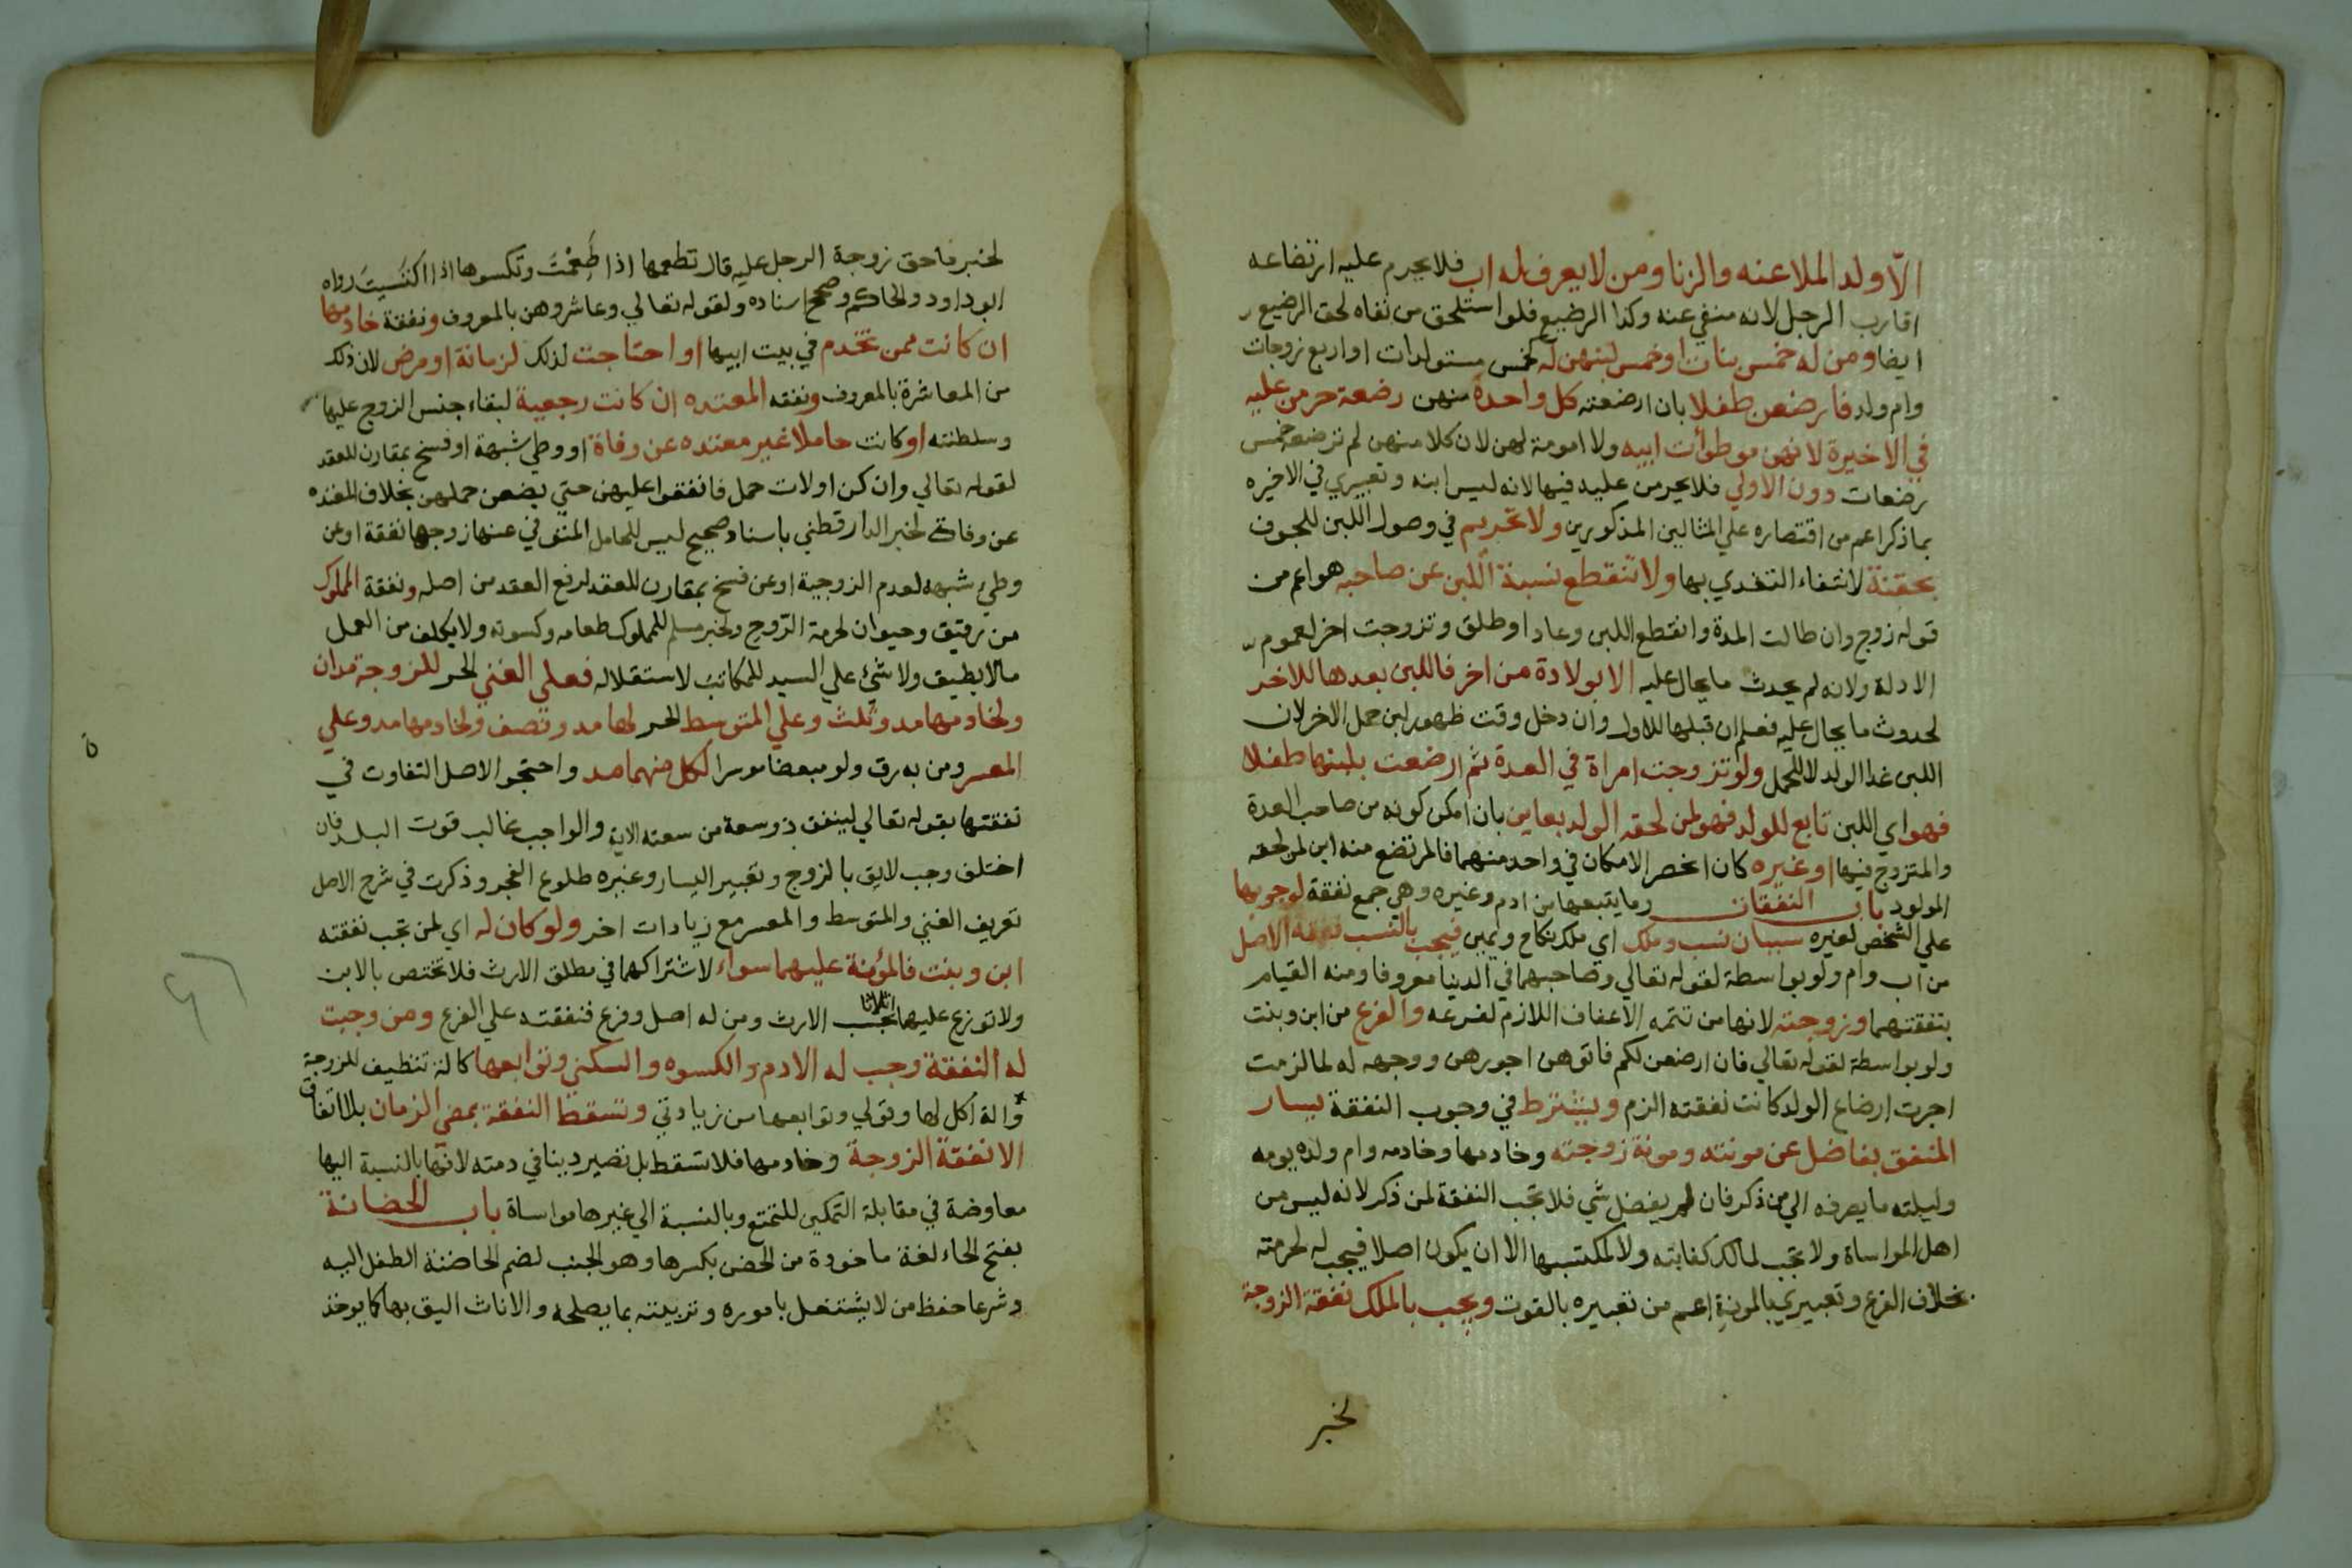 الا ولد الملاعنه والزنا ومن لا يعرف له اب فلا يحرم عليه ارتضاعه
اقارب الرجل لانه منفي عنه وكذا الرضيع فلو استلحق من نفاه لحق الرضيع
ايضا ومن له خمس بنات او خمس لبنهن له كخمس مستولدات او اربع زوجات
وام ولد فارضعن طفلا بان ارضعته كل واحدة منهن رضعة حرمن عليه
في الاخيرة لانهن موطوأت ابيه ولا امومة لهن لان كلا منهن لم ترضعه خمس
رضعات دون الاولي فلا يحرمن عليه فيها لانه ليس ابنه وتعبيري في الاخيره
بما ذكر اعم من اقتصاره علي المثالين المذكورين ولا تحريم في وصول اللبن للجوف
بحقنة لانتفاء التغدي بها ولا تنقطع نسبة اللبن عن صاحبه هو اعم من
قوله زوج وان طالت المدة وانقطع اللبن وعاد او طلق وتزوجت اخر لعموم
الادلة ولانه لم يحدث ما يحال عليه الا بولادة من اخر فاللبن بعدها للاخر
لحدوث ما يحال عليه فعلم ان قبلها للاول وان دخل وقت ظهور لبن حمل الاخر لان
اللبن غدا الولد لا للحمل ولو تزوجت امراة في العدة ثم ارضعت بلبنها طفلا
فهو اي اللبن تابع للولد فهو لمن لحقه الولد بقاين بان امكن كونه من صاحب العدة
والمتزوج فيها او غيره كان انحصر الامكان في واحد منهما فالمرتضع منه ابن لمن لحقه
المولود باب النفقات وما يتبعها من ادم وغيره وهي جمع نفقة لوجوبها
علي الشخص لغيره سببان نسب وملك اي ملك نكاح ويمين فيجب بالنسب نفقة الاصل
من اب وام ولو بواسطة لقوله تعالي وصاحبهما في الدنيا معروفا ومنه القيام
بنفقتهما وزوجته لانها من تتمه الاعفاف اللازم لفرعه والفرع من ابن وبنت
ولو بواسطة لقوله تعالي فان ارضعن لكم فاتوهن اجورهن ووجهه له لما لزمت
اجرت ارضاع الولد كانت نفقته الزم ويشترط في وجوب النفقة يسار
المنفق بفاضل عن مونته ومونة زوجته وخادمها وخادمه وام ولده يومه
وليلته ما يصرفه الي من ذكر فان لم يفضل شي فلا تجب النفقة لمن ذكر لانه ليس من
اهل المواساة ولا تجب لمالك كفايته ولا لمكتسبها الا ان يكون اصلا فيجب له لحرمته
بخلاف الفرع وتعبيري بالمونة اعم من تعبيره بالقوت ويجب بالملك نفقة الزوجة
لخبر
لخبر ما حق زوجة الرجل عليه قال تطعمها اذا طعمت وتكسوها اذا اكتسيت رواه
ابو داود والحاكم وصحح اسناده ولقوله تعالي وعاشروهن بالمعروف ونفقة خادمها
ان كانت ممن تخدم في بيت ابيها او احتاجت لذلك لزمانة او مرض لان ذلك
من المعاشرة بالمعروف ونفقه المعتده ان كانت رجعية لبقاء حبس الزوج عليها
وسلطنته او كانت حاملا غير معتده عن وفاة او وطي شبهة او فسخ بمقارن للعقد
لقوله تعالي وان كن اولات حمل فانفقوا عليهن حتي يضعن حملهن بخلاف المعتده
عن وفاة لخبر الدارقطني باسناد صحيح ليس للحامل المتوفي عنها زوجها نفقة او عن
وطي شبهه لعدم الزوجية او عن فسخ بمقارن للعقد لرفع العقد من اصله ونفقة المملوك
من رقيق وحيوان لحرمة الروح ولخبر مسلم للمملوك طعامه وكسوته ولا يكلف من العمل
ما لا يطيق ولا شئ علي السيد للمكاتب لاستقلاله فعلي الغني الحر للزوجة مدان
ولخادمها مد وثلث وعلي المتوسط الحر لها مد ونصف ولخادمها مد وعلي
المعسر ومن به رق ولو مبعضا موسرا لكل منهما مد واحتجوا لاصل التفاوت في
نفقتها بقوله تعالي لينفق ذو سعة من سعته الاية والواجب غالب قوت البلد فان
اختلف وجب لايق بالزوج وتعبير اليسار وغيره طلوع الفجر وذكرت في شرح الاصل
تعريف الغني والمتوسط والمعسر مع زيادات اخر ولو كان له اي لمن تجب نفقته
ابن وبنت فالمؤنة عليهما سواء لاشتراكهما في مطلق الارث فلا تختص بالابن
ولا توزع عليهما اثلاثا بحسب الارث ومن له اصل وفرع فنفقته علي الفرع ومن وجبت
له النفقة وجب له الادم والكسوه والسكني وتوابعها كالة تنظيف للزوجة
والة اكل لها وقولي وتوابعها من زيادتي وتسقط النفقة بمضي الزمان بلا انفاق
الا نفقة الزوجة وخادمها فلا تسقط بل تصير دينا في دمته لانها بالنسبة اليها
معاوضة في مقابلة التمكين للتمتع وبالنسبة الي غيرها مواساة باب الحضانة
بفتح الحاء لغة ماخودة من الحضن بكسرها وهو الجنب لضم الحاضنة الطفل اليه
وشرعا حفظ من لا يشتغل باموره وتربيته بما يصلحه والاناث اليق بها كما يوخذ